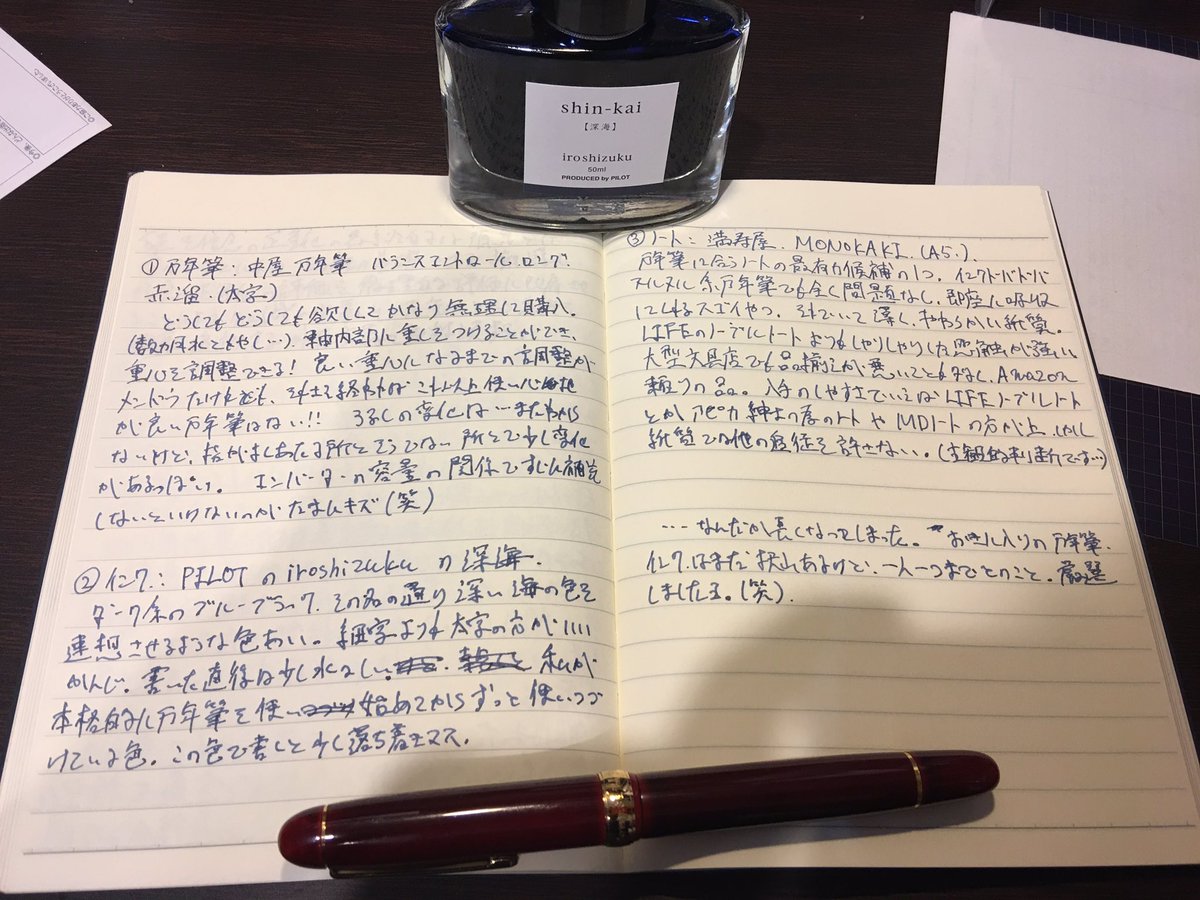 shin-kai
【深海】
iroshizuku
50ml
PRODUCED by PILOT
① 万年筆：中屋万年筆 バランスコントロール ロング.
赤溜.(太字)
どうしてもどうしても欲しくてかなり無理して購入.
(数万円水ともやし…). 軸内部に重しをつけることができ、
重心を調整できる! 良い重心になるまでの調整が
メンドウだけれども、それさえ終わればこれ以上使い心地
が良い万年筆はない!! うるしの変化は…まだわから
ないけど、指がよくあたる所とそうでない所とで少し変化
があるっぽい。コンバーターの容量の関係ですぐに補充
しないといけないのがたまにキズ(笑)
② インク：PILOT の iroshizuku の 深海.
ダーク系のブルーブラック. その名の通り深い海の色を
連想させるような色あい。細字よりも太字の方がいい
かんじ。書いた直後は少し水っぽい. 私が
本格的に万年筆を使い始めてからずっと使いつづ
けている色。この色で書くと少し落ち着きマス.
③ ノート：満寿屋. MONOKAKI. (A5.)
万年筆に合うノートの最有力候補の1つ. インクドバドバ
ヌルヌル系万年筆でも全く問題なし. 即座に吸収
してくれるスゴイやつ. それでいて薄く、やわらかい紙質.
LIFEのノーブルノートよりもしゃりしゃりした感触が強い
大型文具店でも品揃えが悪いこともあるし、Amazon
頼りの品. 入手のしやすさでいえばLIFEノーブルノート
とか アピカ紳士の季のノートやMDノートの方が上. しかし
紙質では他の追従を許さない。(主観的判断です…)
…なんだか長くなってしまった。お気に入りの万年筆.
インクはまだ沢山あるけど、一人一つまでとのこと。厳選
しましたヨ。(笑).